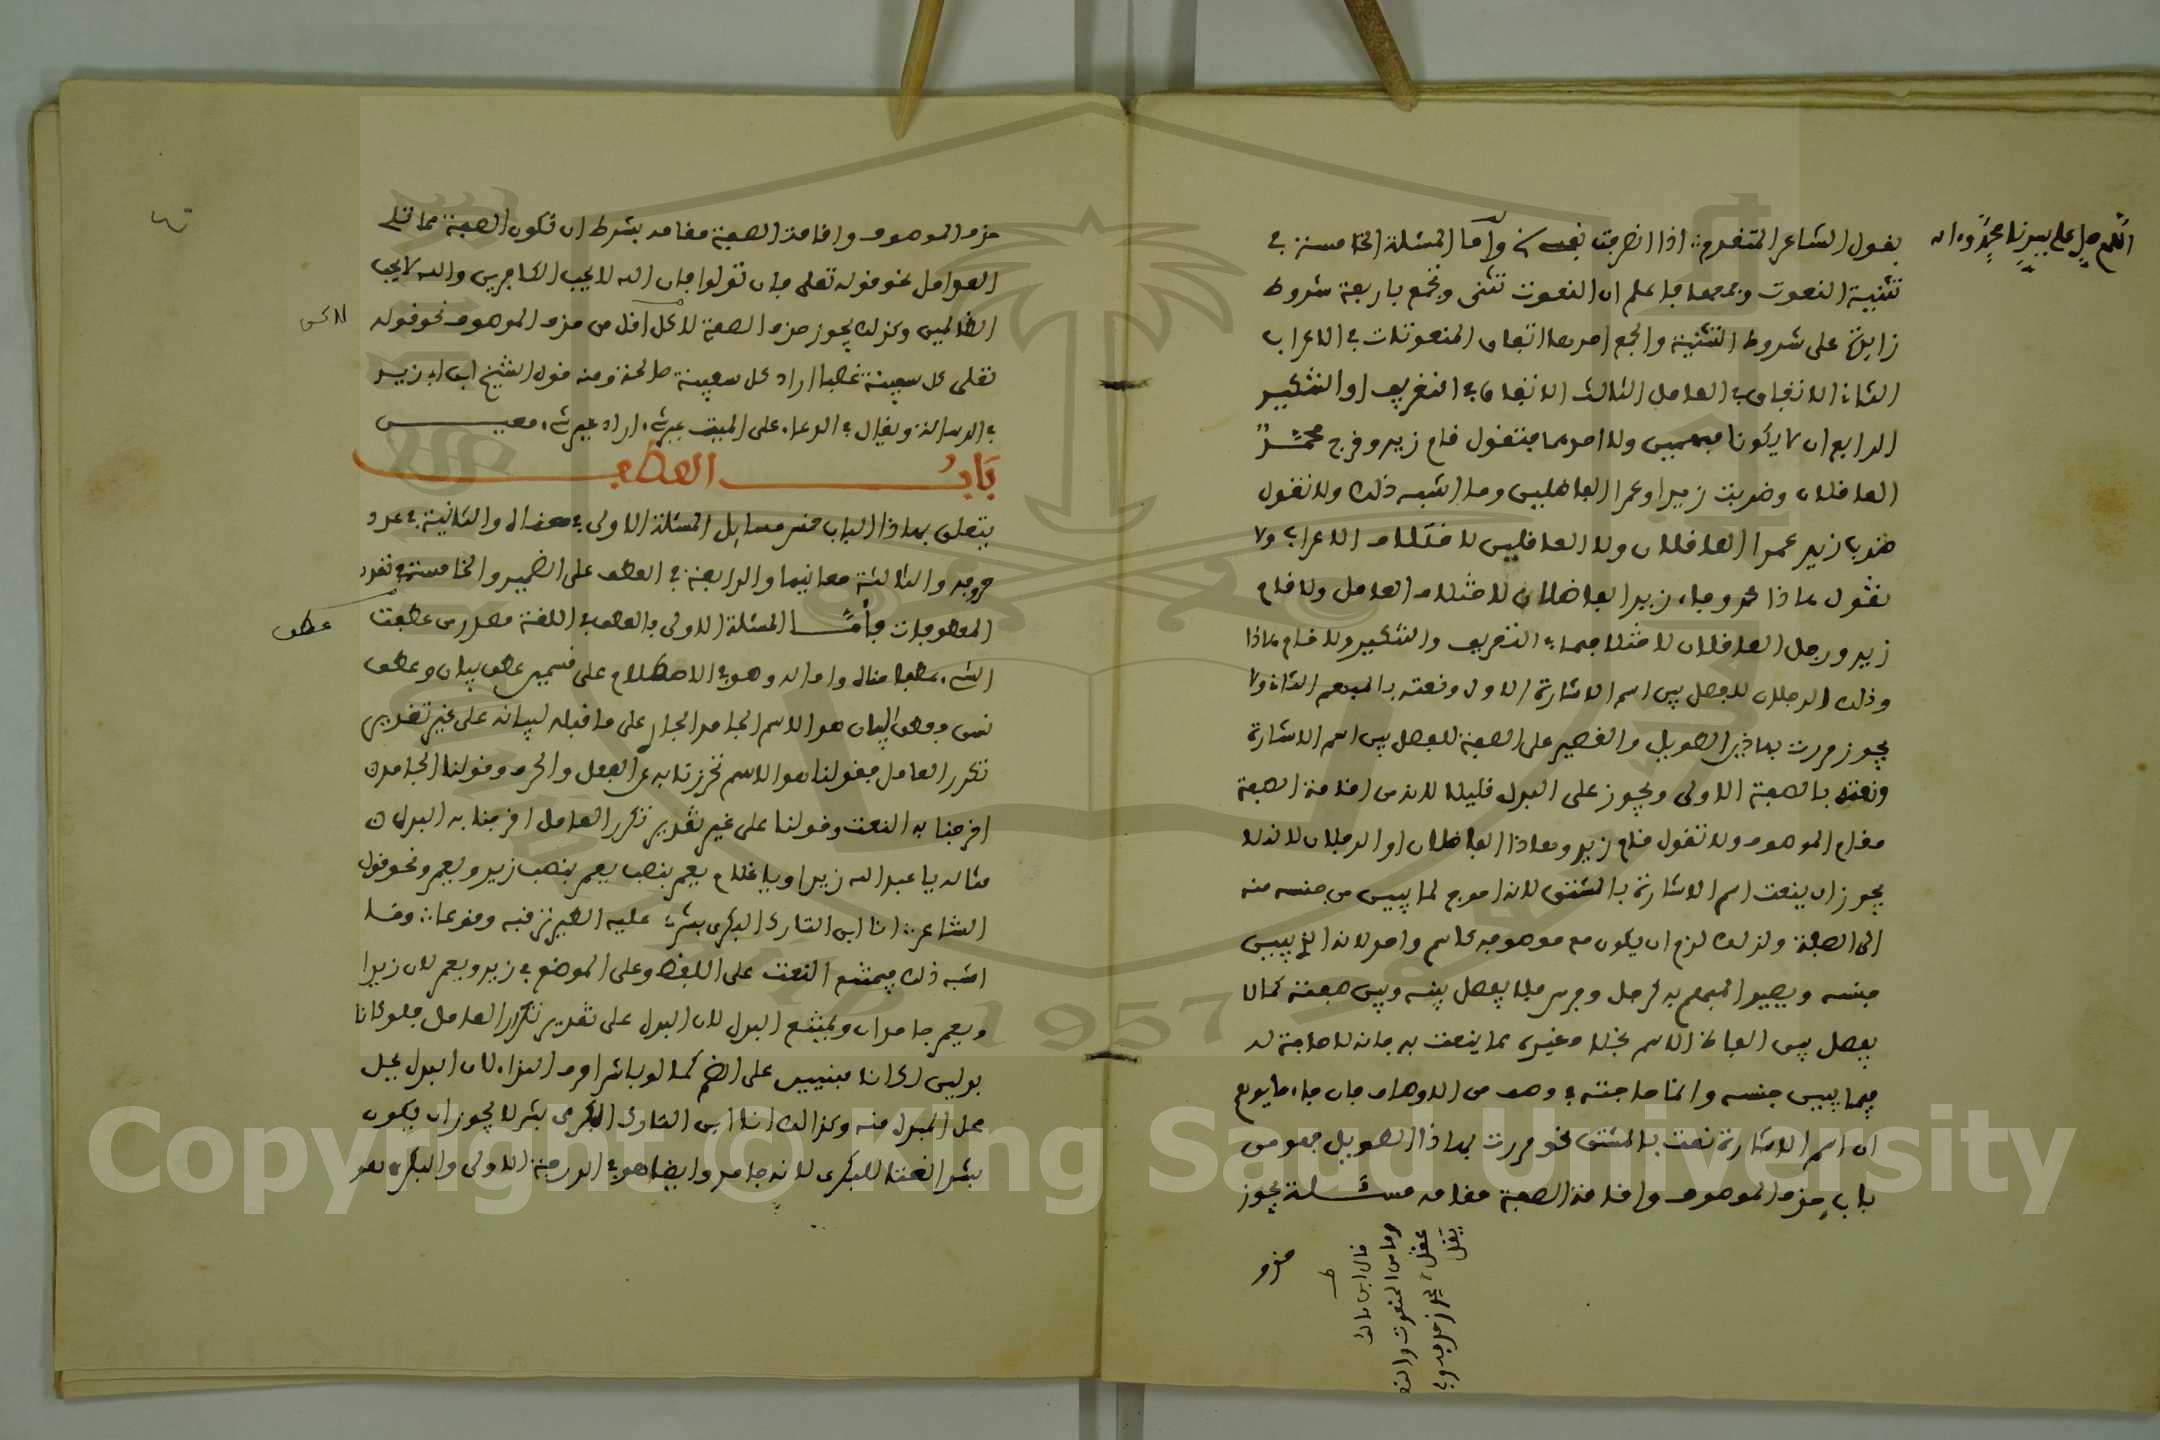 اللهم صل على سيدنا محمد وءاله
بقول الشاعر المتقدم اذا انصرفت نفسي وأما المسئلة الخامسة في
تثنية النعوت وجمعها فاعلم ان النعوت تثنى وتجمع باربعة شروط
زايدة على شروط التثنية والجمع احدها اتفاق المنعوتات في الاعراب
الثاني الاتفاق في العامل الثالث الاتفاق في التعريف او التنكير
الرابع ان لا يكونا مبهمين ولا احدهما فتقول قام زيد وخرج محمدٌ
العاقلان وضربت زيدا وعمرا العاقلين وما اشبه ذلك ولا تقول
ضرب زيد عمرا العاقلان ولا العاقلين لاختلاف الاعراب ولا
تقول هاذا عمرو وجاء زيد الفاضلان لاختلاف العامل ولا قام
زيد ورجل العاقلان لاختلافهما في التعريف والتنكير ولا قام هاذا
وذلك الرجلان للفصل بين اسم الاشارة الاول ونعته بالمبهم الثاني ولا
يجوز مررت بهاذين الطويل والقصير على الصفة للفصل بين اسم الاشارة
ونعته بالصفة الاولى ويجوز على البدل قليلا لانه من اقامة الصفة
مقام الموصوف ولا تقول قام زيد وهاذا الفاضلان او الرجلان لانه لا
يجوز ان ينعت اسم الاشارة بالمشتق لانه احوج لما يبين من جنسه منه
الى الصفة ولذلك لزم ان يكون مع موصوفه كاسم واحد لانه الذي يبين
جنسه ويصير المبهم به كرجل وفرس فلا يفصل بينه وبين صفته كما لا
يفصل بين الفاظ الاسم بخلاف غيره مما ينعت به فانه لا حاجة له
فيما يبين جنسه وانما حاجته في وصف من الاوصاف فان جاء ما يوهم
ان اسم الاشارة نعت بالمشتق نحو مررت بهاذا الطويل فهو من
باب حذف الموصوف واقامة الصفة مقامه مسئلة يجوز
حذف
ط
قال ابن مالك
وما من المنعوت والنعت
عقل يجوز حذفه وفي
يقل
حذف الموصوف واقامة الصفة مقامه بشرط ان تكون الصفة مما تلي
العوامل نحو قوله تعلى فان تولوا فان الله لا يحب الكافرين والله لا يحب
الظالمين وكذلك يجوز حذف الصفة لاكن اقل من حذف الموصوف نحو قوله
لاكن
تعلى كل سفينة غصبا اراد كل سفينة صالحة ومنه قول الشيخ ابن ابي زيد
في الرسالة ويقال في الدعاء على الميت غير شيء اراد غير شيء معين
بَابُ العطف
يتعلق بهاذا الباب خمس مسايل المسئلة الاولى في معناه والثانية في عدد
حروفه والثالثة معانيها والرابعة في العطف على الضمير والخامسة في تقدير
المعطوفات فأما المسئلة الاولى فالعطف في اللغة مصدر من عطفت
عطف
الشيء عطفا مناله وامواله وهو في الاصطلاح على قسمين عطف بيان وعطف
نسق فعطف البيان هو الاسم الجامد الجاري على ما قبله لبيانه على غير تقدير
تكرر العامل فقولنا هو الاسم تحرزنا به من الفعل والحرف وقولنا الجامد
اخرجنا به النعت وقولنا على غير تقدير تكرر العامل اخرجنا به البدل
مثاله يا عبد الله زيدا ويا غلام يعمر بنصب يعمر بنصب زيد ويعمر ونحو قول
الشاعر انا ابن التارك البكري بشر عليه الطير ترقبه وقوعا وما
اشبه ذلك فيمتنع النعت على اللفظ وعلى الموضع في زيد ويعمر لان زيدا
ويعمر جامدان ويمتنع البدل لان البدل على تقدير تكرار العامل فلو كانا
بدلين لكانا مبنيين على الضم كما لو باشرا حرف النداء لان البدل يحل
محل المبدل منه وكذالك انا ابن التارك البكري بشر لا يجوز ان يكون
بشر نعتا للبكري لانه جامد وايضا هو في الدرجة الاولى والبكري هو